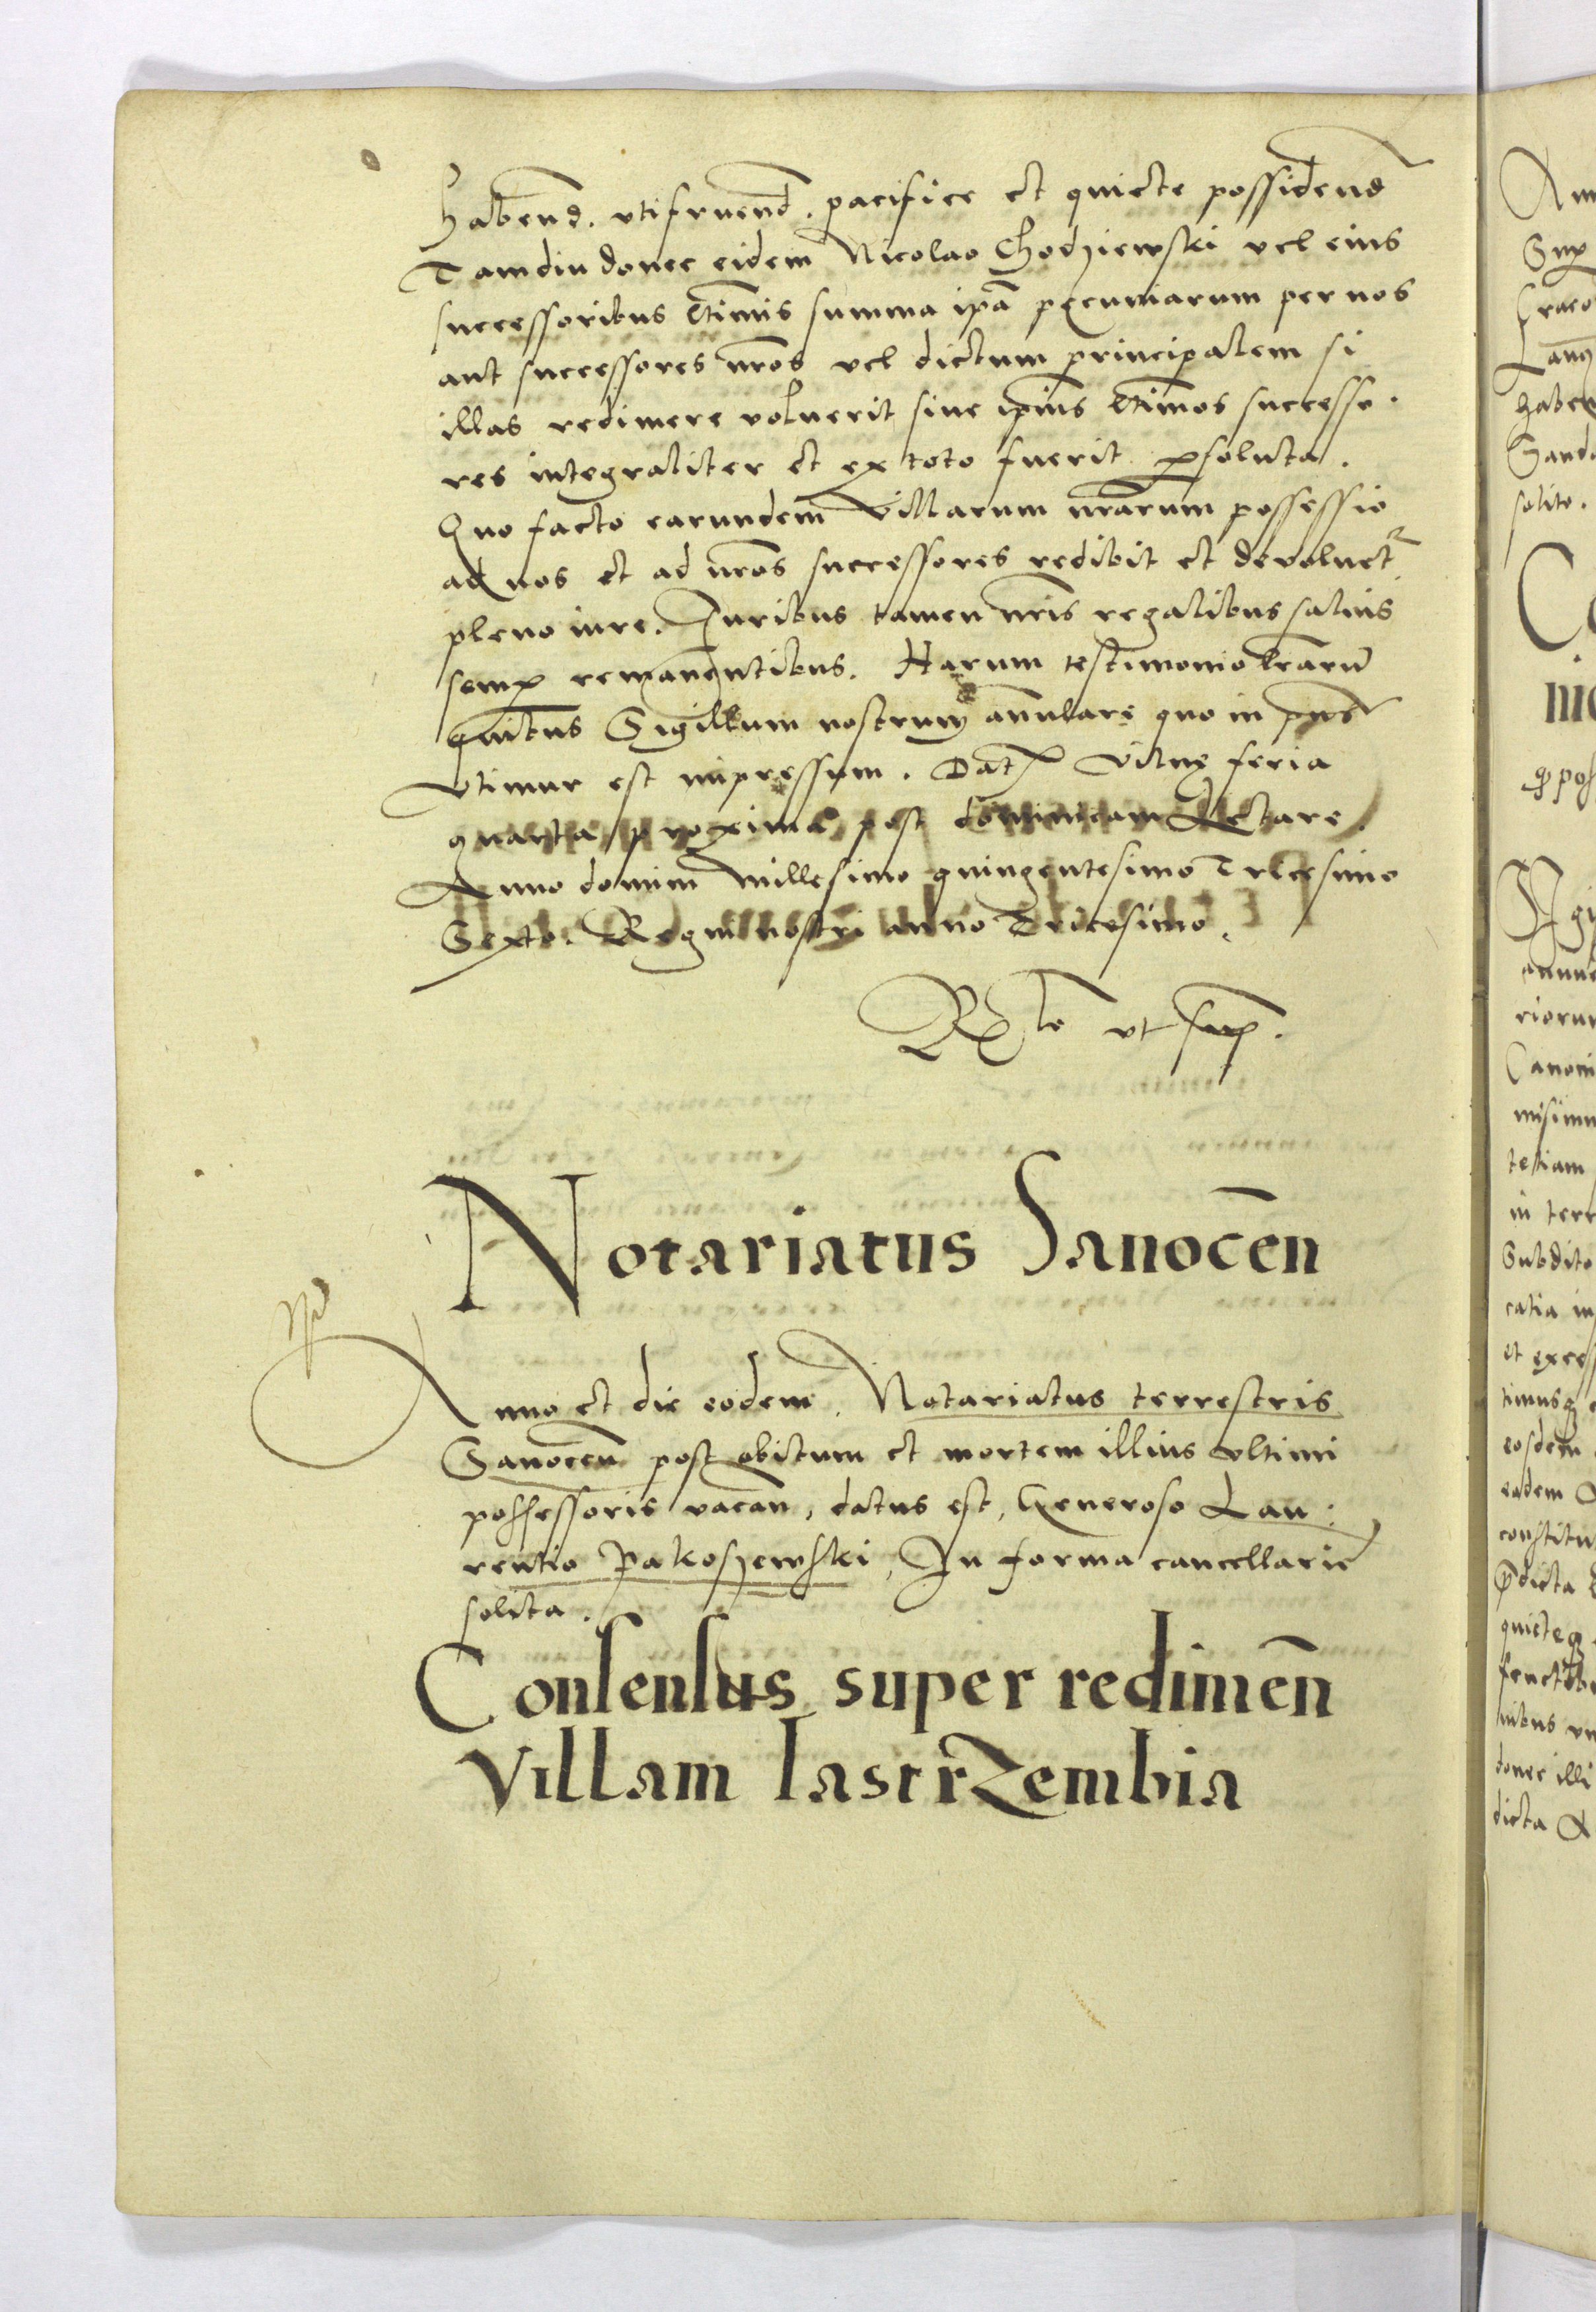 habend. vtifruend. pacifice et quiete possidend
Tamdiu donec eidem Nicolao Chodziewski vel eius
successoribus ltimis summa ipa pecuniarum per nos
aut successores nros vel dictum principalem si
illas redimere voluerit siue ipius ltimos successo
res integraliter et ex toto fuerit psoluta.
Quo facto earundem villarum nrarum possessio
ad nos et ad nros successores redibit et deuoluet
pleno iure. Juribus tamen nris regalibus saluis
semp remanentibus. Harum testimonio lrarum
quibus Sigillum nostrum annulare quo in pnt
vtimur est impressum. Dat Vilnę feria
quarta proxima post dominicam Lętare.
Anno domini Millesimo quingentesimo Tricesimo
Sexto. Regni nostri anno Tricesimo.
Rlo vt sup.
Notariatus Sanocen
Anno et die eodem. Notariatus terrestris
Sanocen post obitum et mortem illius vltimi
possessoris vacan, datus est, Generoso Lau
rentio Pakoszewski, In forma cancellarie
solita.
Consensus super redimen
Villam Iastrzembia